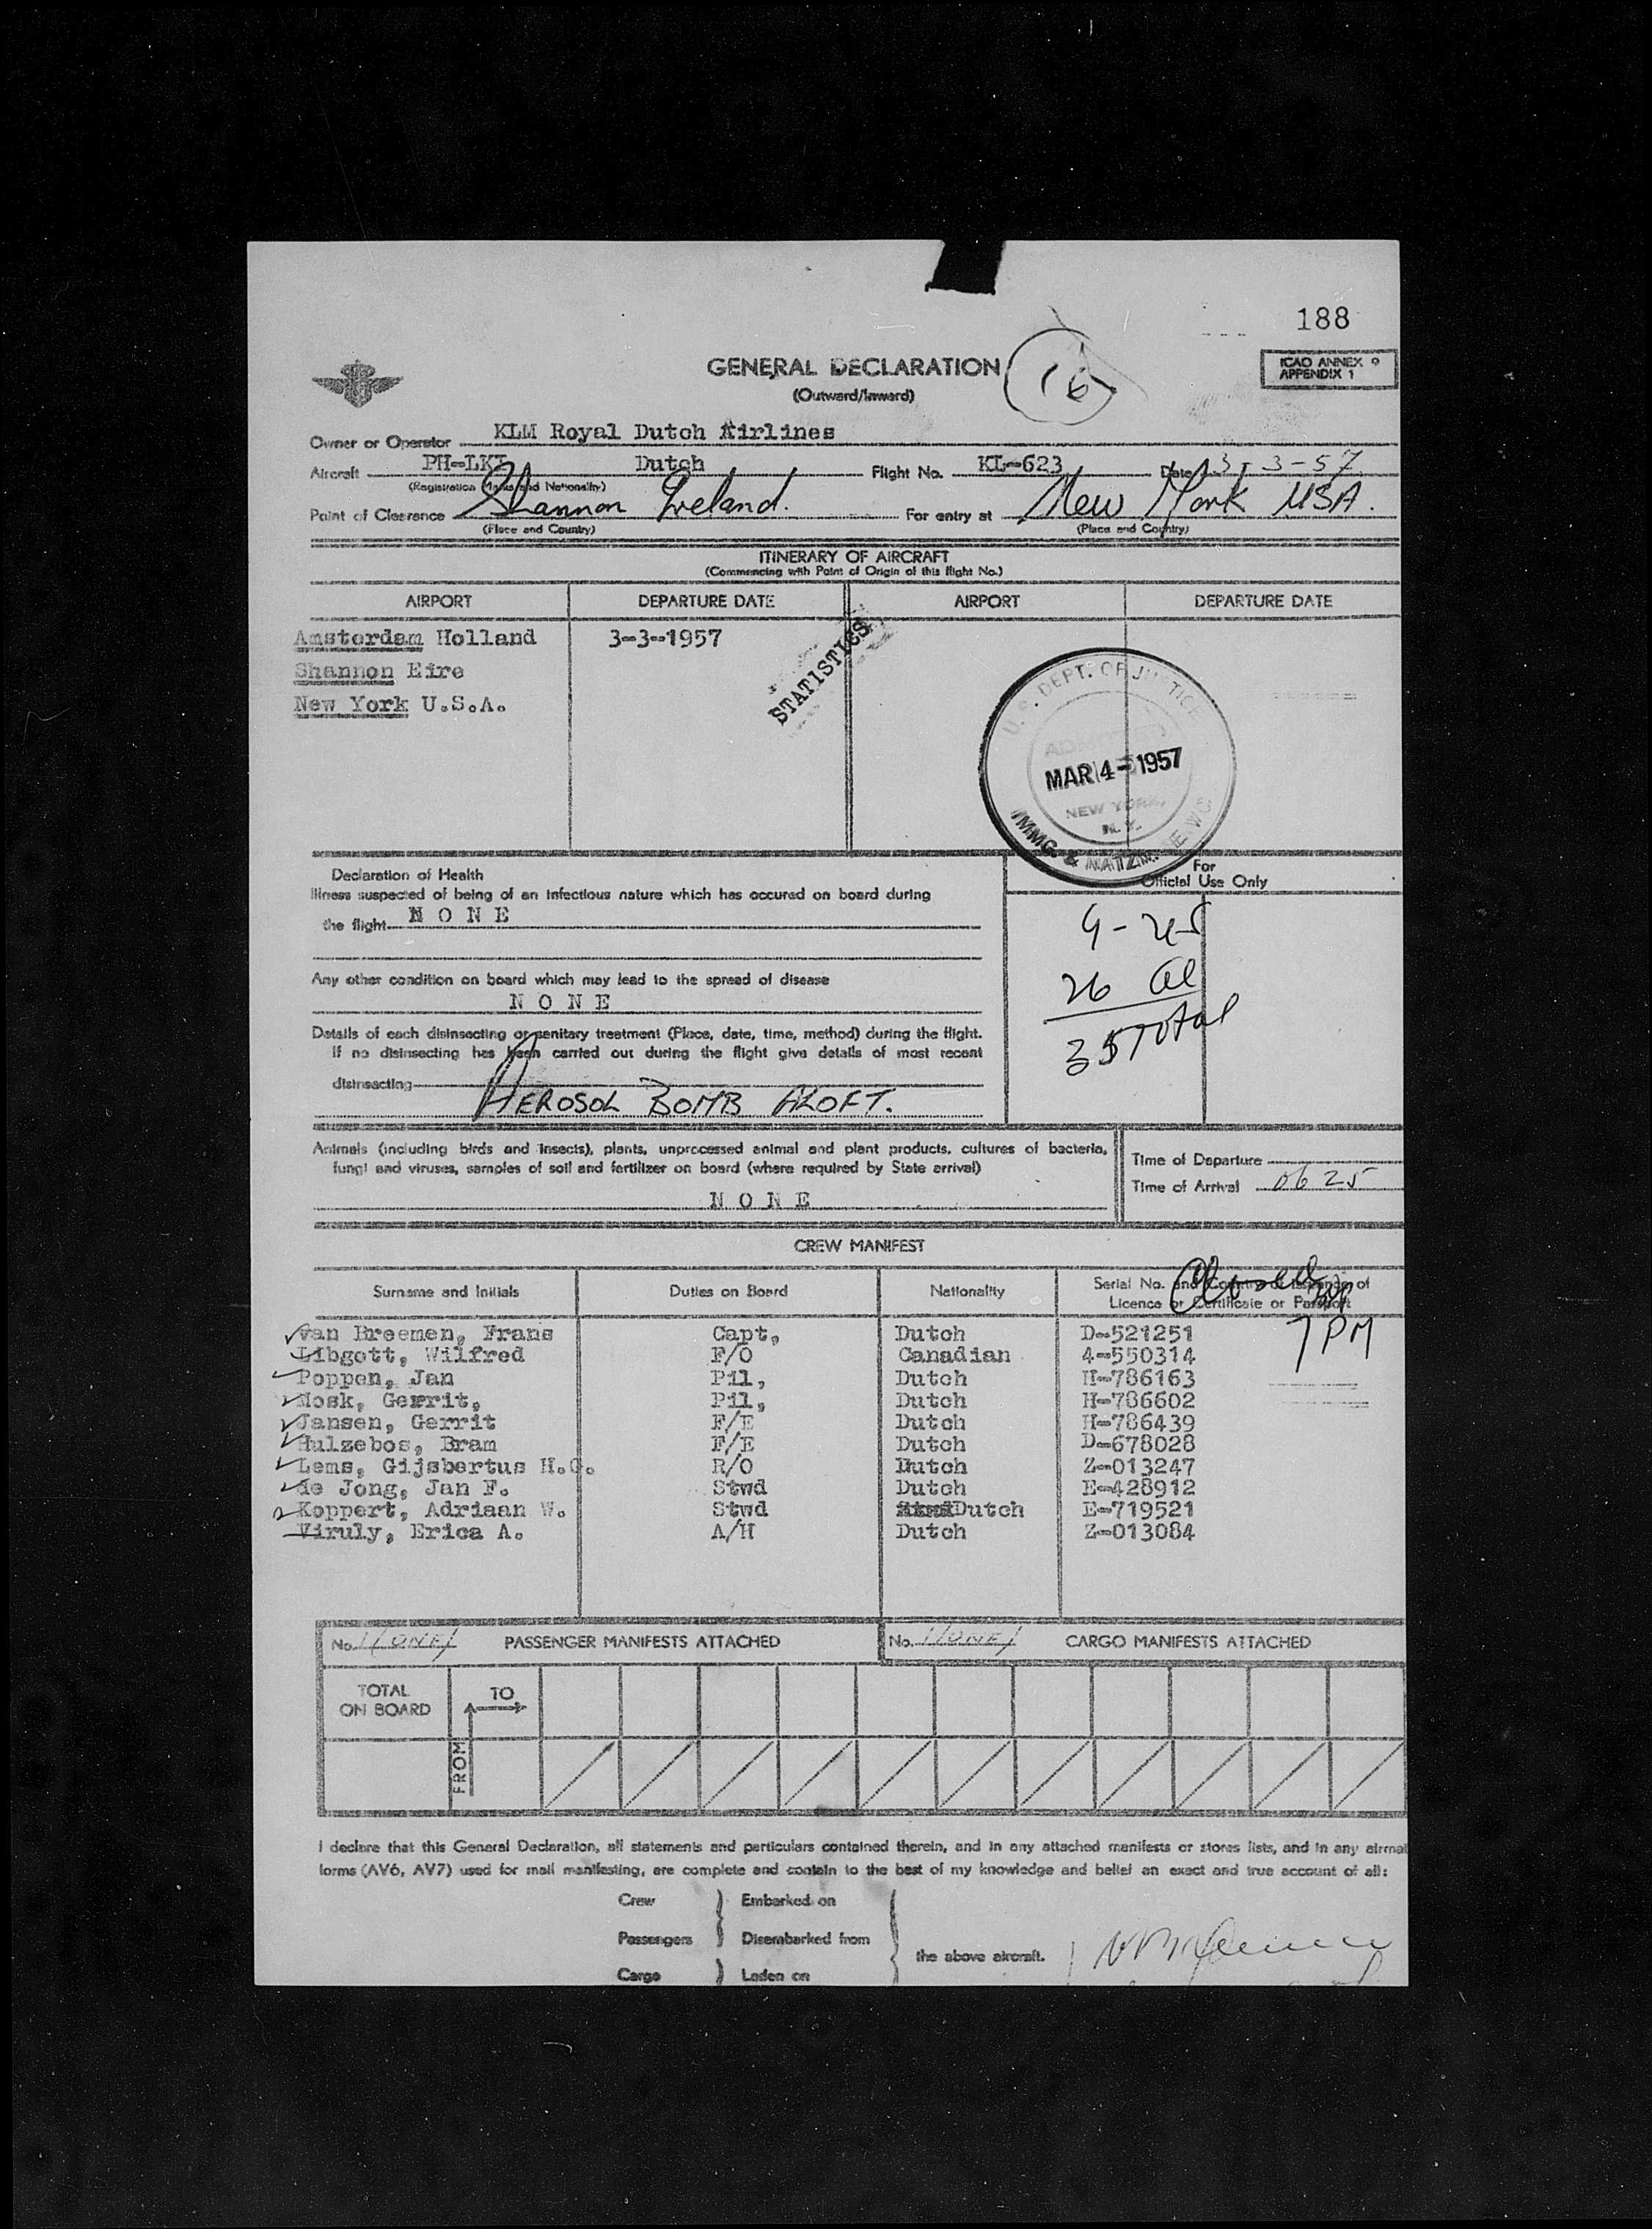 188
GENERAL DECLARATION
(Outward/Inward)
ICAO ANNEX 9
APPENDIX 1
Owner or Operator KLM Royal Dutch Airlines
Aircraft Dutch Flight No. KL-623 Date 3-3-57
(Registration Marks and Nationality)
Point of Clearance Shannon Ireland. For entry at New York USA.
(Place and Country) (Place and Country)
ITINERARY OF AIRCRAFT
(Commencing with Point of Origin of this flight No.)
AIRPORT DEPARTURE DATE AIRPORT DEPARTURE DATE
Amsterdam Holland 3-3-1957
Shannon Eire
New York U.S.A.
STATISTICS
U. S. DEPT. OF JUSTICE
ADMITTED
MAR 4-1957
NEW YORK,
N.Y.
IMMG. & NATZN.
Declaration of Health
For
Official Use Only
Illness suspected of being of an infectious nature which has occured on board during
the flight NONE
Any other condition on board which may lead to the spread of disease
NONE
26 al
35 Total
Details of each disinsecting or sanitary treatment (Place, date, time, method) during the flight.
If no disinsecting has been carried out during the flight give details of most recent
disinsecting
AEROSOL BOMB ALOFT.
Animals (including birds and insects), plants, unprocessed animal and plant products, cultures of bacteria,
fungi and viruses, samples of soil and fertilizer on board (where required by State arrival)
NONE
Time of Departure
Time of Arrival 0625
CREW MANIFEST
Surname and Initials Duties on Board Nationality Serial No. and Country of Issuance of
Licence or Certificate or Passport
Closed
7 PM
van Breemen, Frans Capt, Dutch D-521251
Libgott, Wilfred F/O Canadian 4-550314
Poppen, Jan Pil, Dutch H-786163
Mosk, Gerrit, Pil, Dutch H-786602
Jansen, Gerrit F/E Dutch H-786439
Hulzebos, Bram F/E Dutch D-678028
Lems, Gijsbertus H.C. R/O Dutch Z-013247
de Jong, Jan F. Stwd Dutch E-428912
Koppert, Adriaan W. Stwd Dutch E-719521
Viruly, Erica A. A/H Dutch Z-013084
No. 1/ONE/ PASSENGER MANIFESTS ATTACHED No. 1/ONE/ CARGO MANIFESTS ATTACHED
TOTAL
ON BOARD
TO
FROM
I declare that this General Declaration, all statements and particulars contained therein, and in any attached manifests or stores lists, and in any airmail
forms (AV6, AV7) used for mail manifesting, are complete and contain to the best of my knowledge and belief an exact and true account of all:
Crew Embarked on
Passengers Disembarked from
the above aircraft.
Cargo Laden on